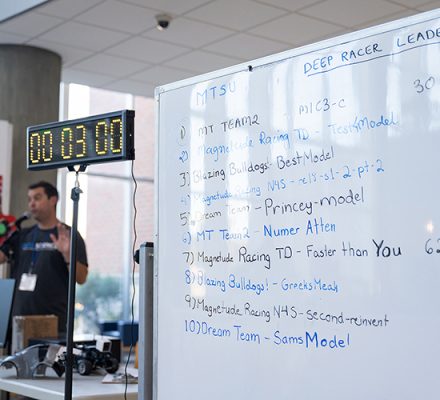 DEEP RACER LEADE
MTSU
30
00 03 00
1) MT TEAM2 M1C3-C
2) Magnetude Racing TD - TestModel
3) Blazing Bulldogs - BestModel
4) Magnetude Racing N4S - re:18-s1-2-pt-2
5) Dream Team - Princey-model
6) MT Team2 - Numer Atten
7) Magnetude Racing TD - Faster than You 62
8) Blazing Bulldogs! - GreeksMeak
9) Magnetude Racing N4S - second-reinvent
10) Dream Team - SamsModel